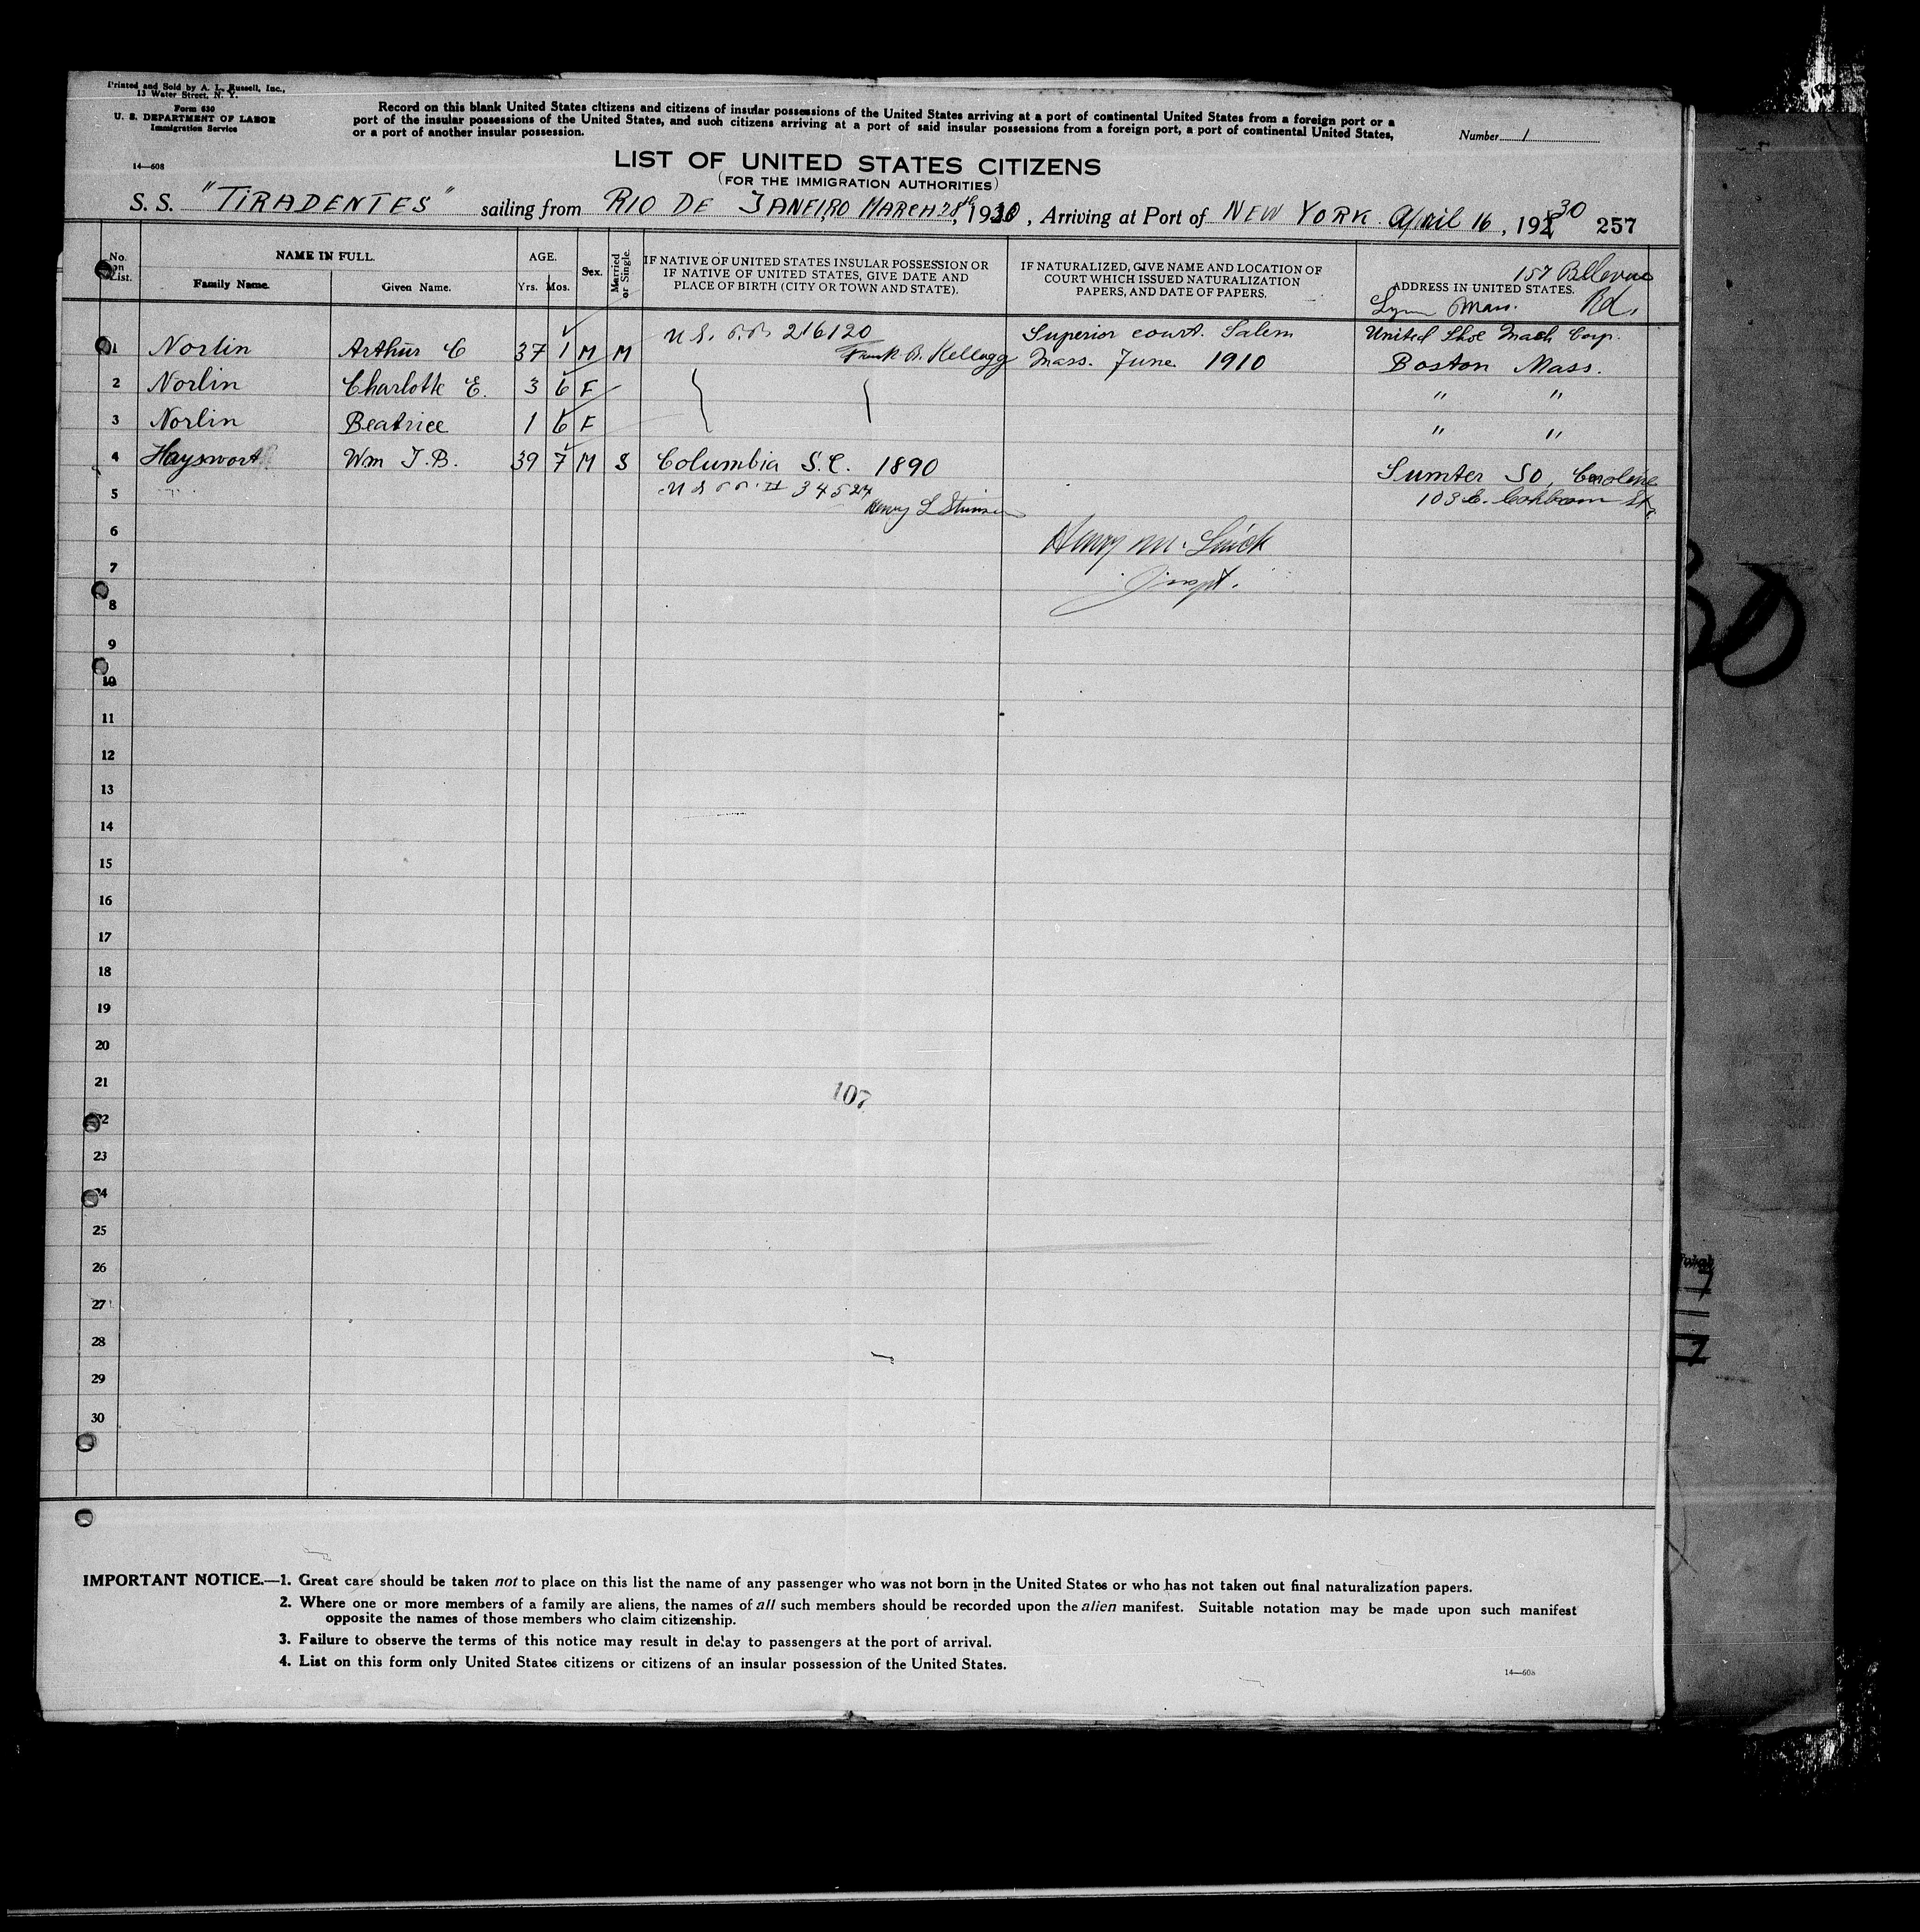 Printed and Sold by A. L. Russell, Inc.,
13 Water Street, N. Y.
Form 630
U. S. DEPARTMENT OF LABOR
Immigration Service
14—608
Record on this blank United States citizens and citizens of insular possessions of the United States arriving at a port of continental United States from a foreign port or a
port of the insular possessions of the United States, and such citizens arriving at a port of said insular possessions from a foreign port, a port of continental United States,
or a port of another insular possession.
Number 1
LIST OF UNITED STATES CITIZENS
(FOR THE IMMIGRATION AUTHORITIES)
S. S. "TIRADENTES" sailing from RIO DE JANEIRO MARCH 28th, 1930, Arriving at Port of NEW YORK April 16, 1930 257
No. on List.
NAME IN FULL.
Family Name.
Given Name.
AGE.
Yrs. Mos.
Sex.
Married or Single.
IF NATIVE OF UNITED STATES INSULAR POSSESSION OR
IF NATIVE OF UNITED STATES, GIVE DATE AND
PLACE OF BIRTH (CITY OR TOWN AND STATE).
IF NATURALIZED, GIVE NAME AND LOCATION OF
COURT WHICH ISSUED NATURALIZATION
PAPERS, AND DATE OF PAPERS.
157 Bellevue
ADDRESS IN UNITED STATES.
Lynn Mass. Rd.
U.S. P.P. 216120 Superior court. Salem United Shoe Mach Corp.
1 Norlin Arthur C 37 1 M M Frank B. Kellogg Mass. June 1910 Boston Mass.
2 Norlin Charlotte E. 3 6 F " "
3 Norlin Beatrice 1 6 F " "
4 Hayswort Wm T.B. 39 7 M S Columbia S.C. 1890 Sumter So, Caroline
5 U S P.P. # 34524 103 E. St.
Henry L Stimson
6 Henry M.
7 Inspt.
8
9
10
11
12
13
14
15
16
17
18
19
20
21
107
22
23
24
25
26
27
28
29
30
IMPORTANT NOTICE.—1. Great care should be taken not to place on this list the name of any passenger who was not born in the United States or who has not taken out final naturalization papers.
2. Where one or more members of a family are aliens, the names of all such members should be recorded upon the alien manifest. Suitable notation may be made upon such manifest
opposite the names of those members who claim citizenship.
3. Failure to observe the terms of this notice may result in delay to passengers at the port of arrival.
4. List on this form only United States citizens or citizens of an insular possession of the United States.
14—608